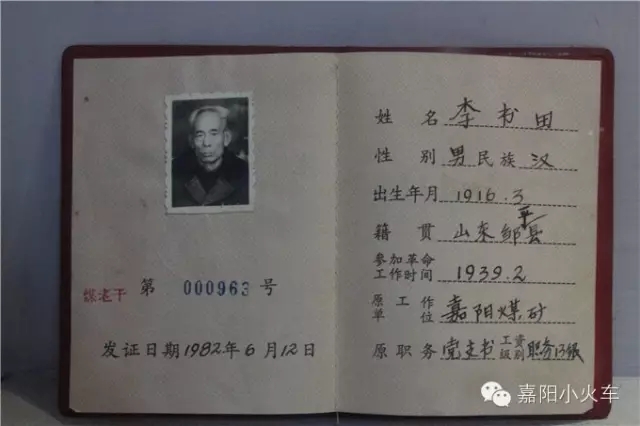 煤老干 第 000963 号
发证日期 1982年6月12日
姓名 李书田
性别 男 民族 汉
出生年月 1916.3
籍贯 山东邹平县
参加革命
工作时间 1939.2
原工作
单位 嘉阳煤矿
原职务 党支书 工资级别 职务13级
嘉阳小火车